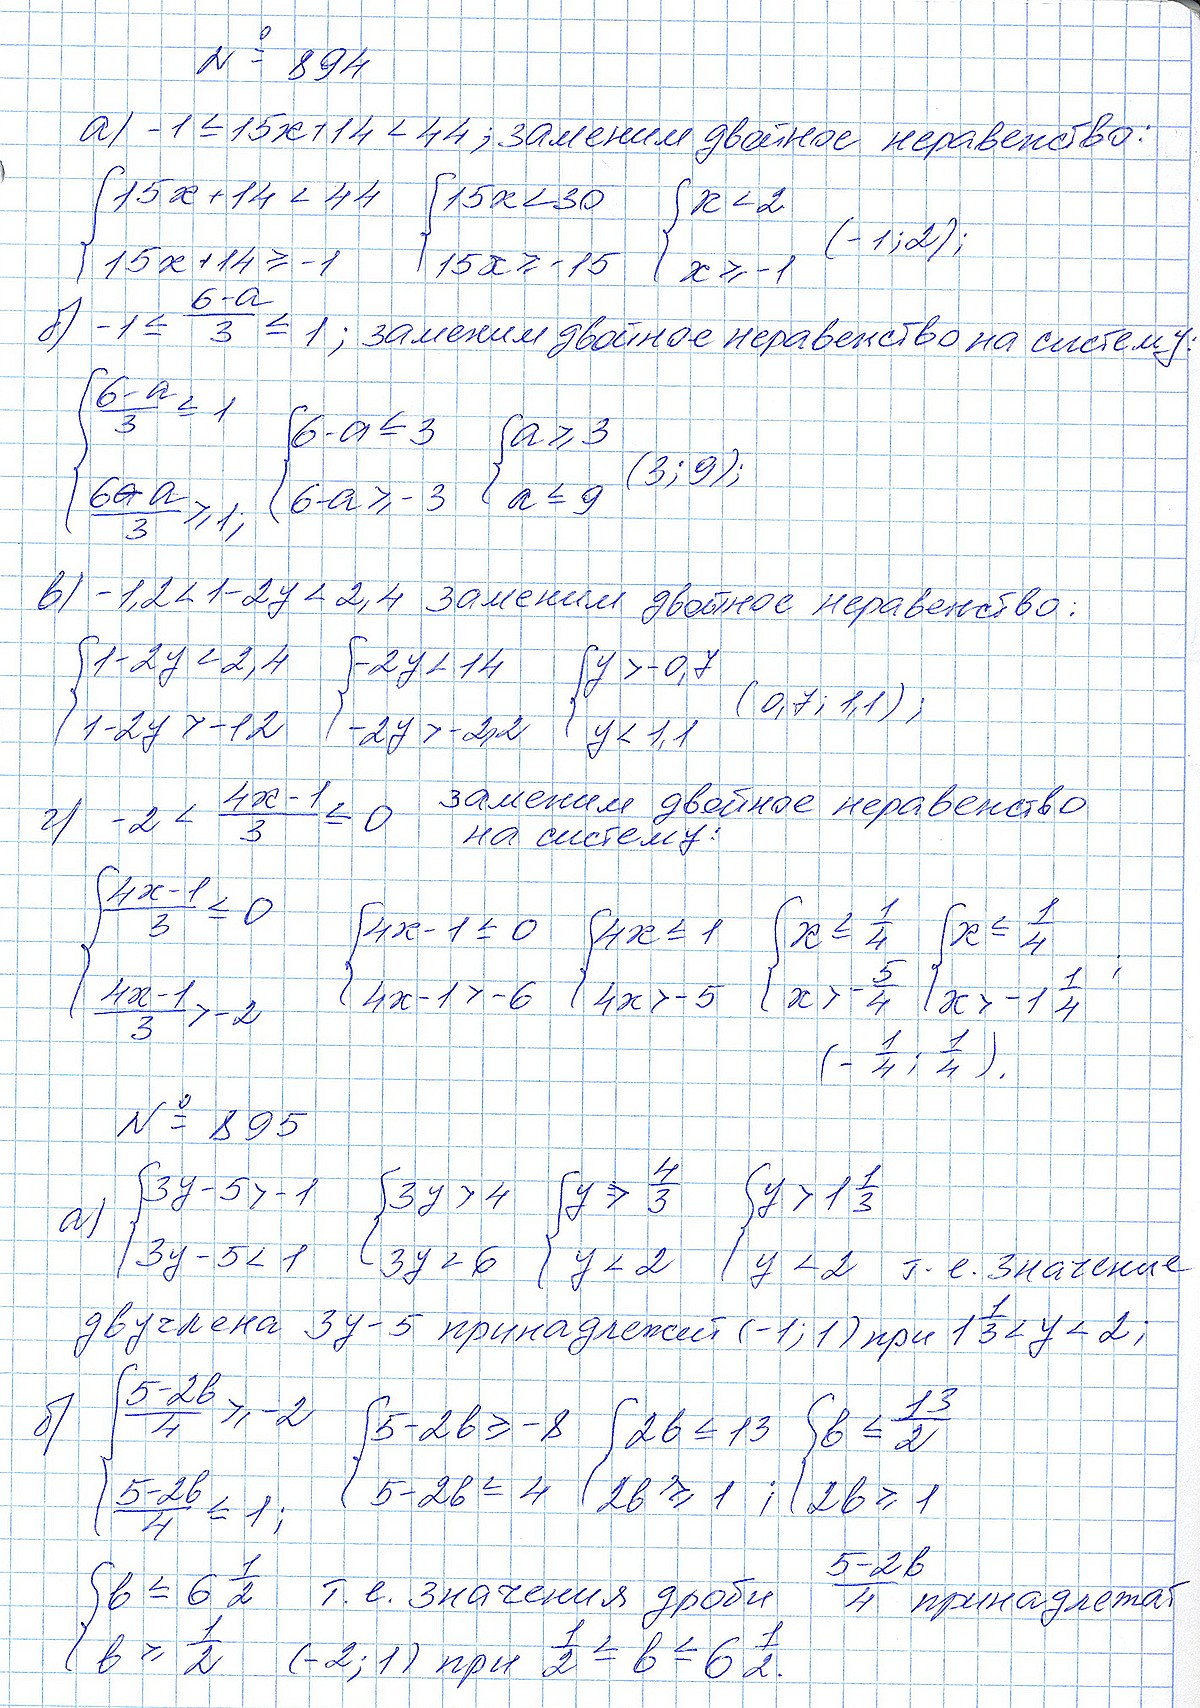 № 894
а) -1 ≤ 15x+14 < 44; заменим двойное неравенство:
{15x+14 < 44 {15x < 30 {x < 2
{15x+14 ≥ -1 {15x ≥ -15 {x ≥ -1 (-1; 2);
б) -1 ≤ (6-a)/3 ≤ 1; заменим двойное неравенство на систему:
{(6-a)/3 ≤ 1 {6-a ≤ 3 {a ≥ 3
{(6-a)/3 ≥ 1; {6-a ≥ -3 {a ≤ 9 (3; 9);
в) -1,2 < 1-2y < 2,4 заменим двойное неравенство:
{1-2y < 2,4 {-2y < 14 {y > -0,7
{1-2y > -12 {-2y > -2,2 {y < 1,1 (0,7; 1,1);
г) -2 < (4x-1)/3 ≤ 0 заменим двойное неравенство
на систему:
{(4x-1)/3 ≤ 0 {4x-1 ≤ 0 {4x ≤ 1 {x ≤ 1/4 {x ≤ 1/4
{(4x-1)/3 > -2 {4x-1 > -6 {4x > -5 {x > -5/4 {x > -1 1/4 ;
(-1/4; 1/4).
№ 895
а) {3y-5 > -1 {3y > 4 {y > 4/3 {y > 1 1/3
{3y-5 < 1 {3y < 6 {y < 2 {y < 2 т. е. значение
двучлена 3y-5 принадлежит (-1; 1) при 1 1/3 < y < 2;
б) {(5-2b)/4 ≥ -2 {5-2b ≥ -8 {2b ≤ 13 {b ≤ 13/2
{(5-2b)/4 ≤ 1; {5-2b ≤ 4 {2b ≥ 1 ; {2b ≥ 1
{b ≤ 6 1/2 т. е. значения дроби (5-2b)/4 принадлежат
{b ≥ 1/2 (-2; 1) при 1/2 ≤ b ≤ 6 1/2.